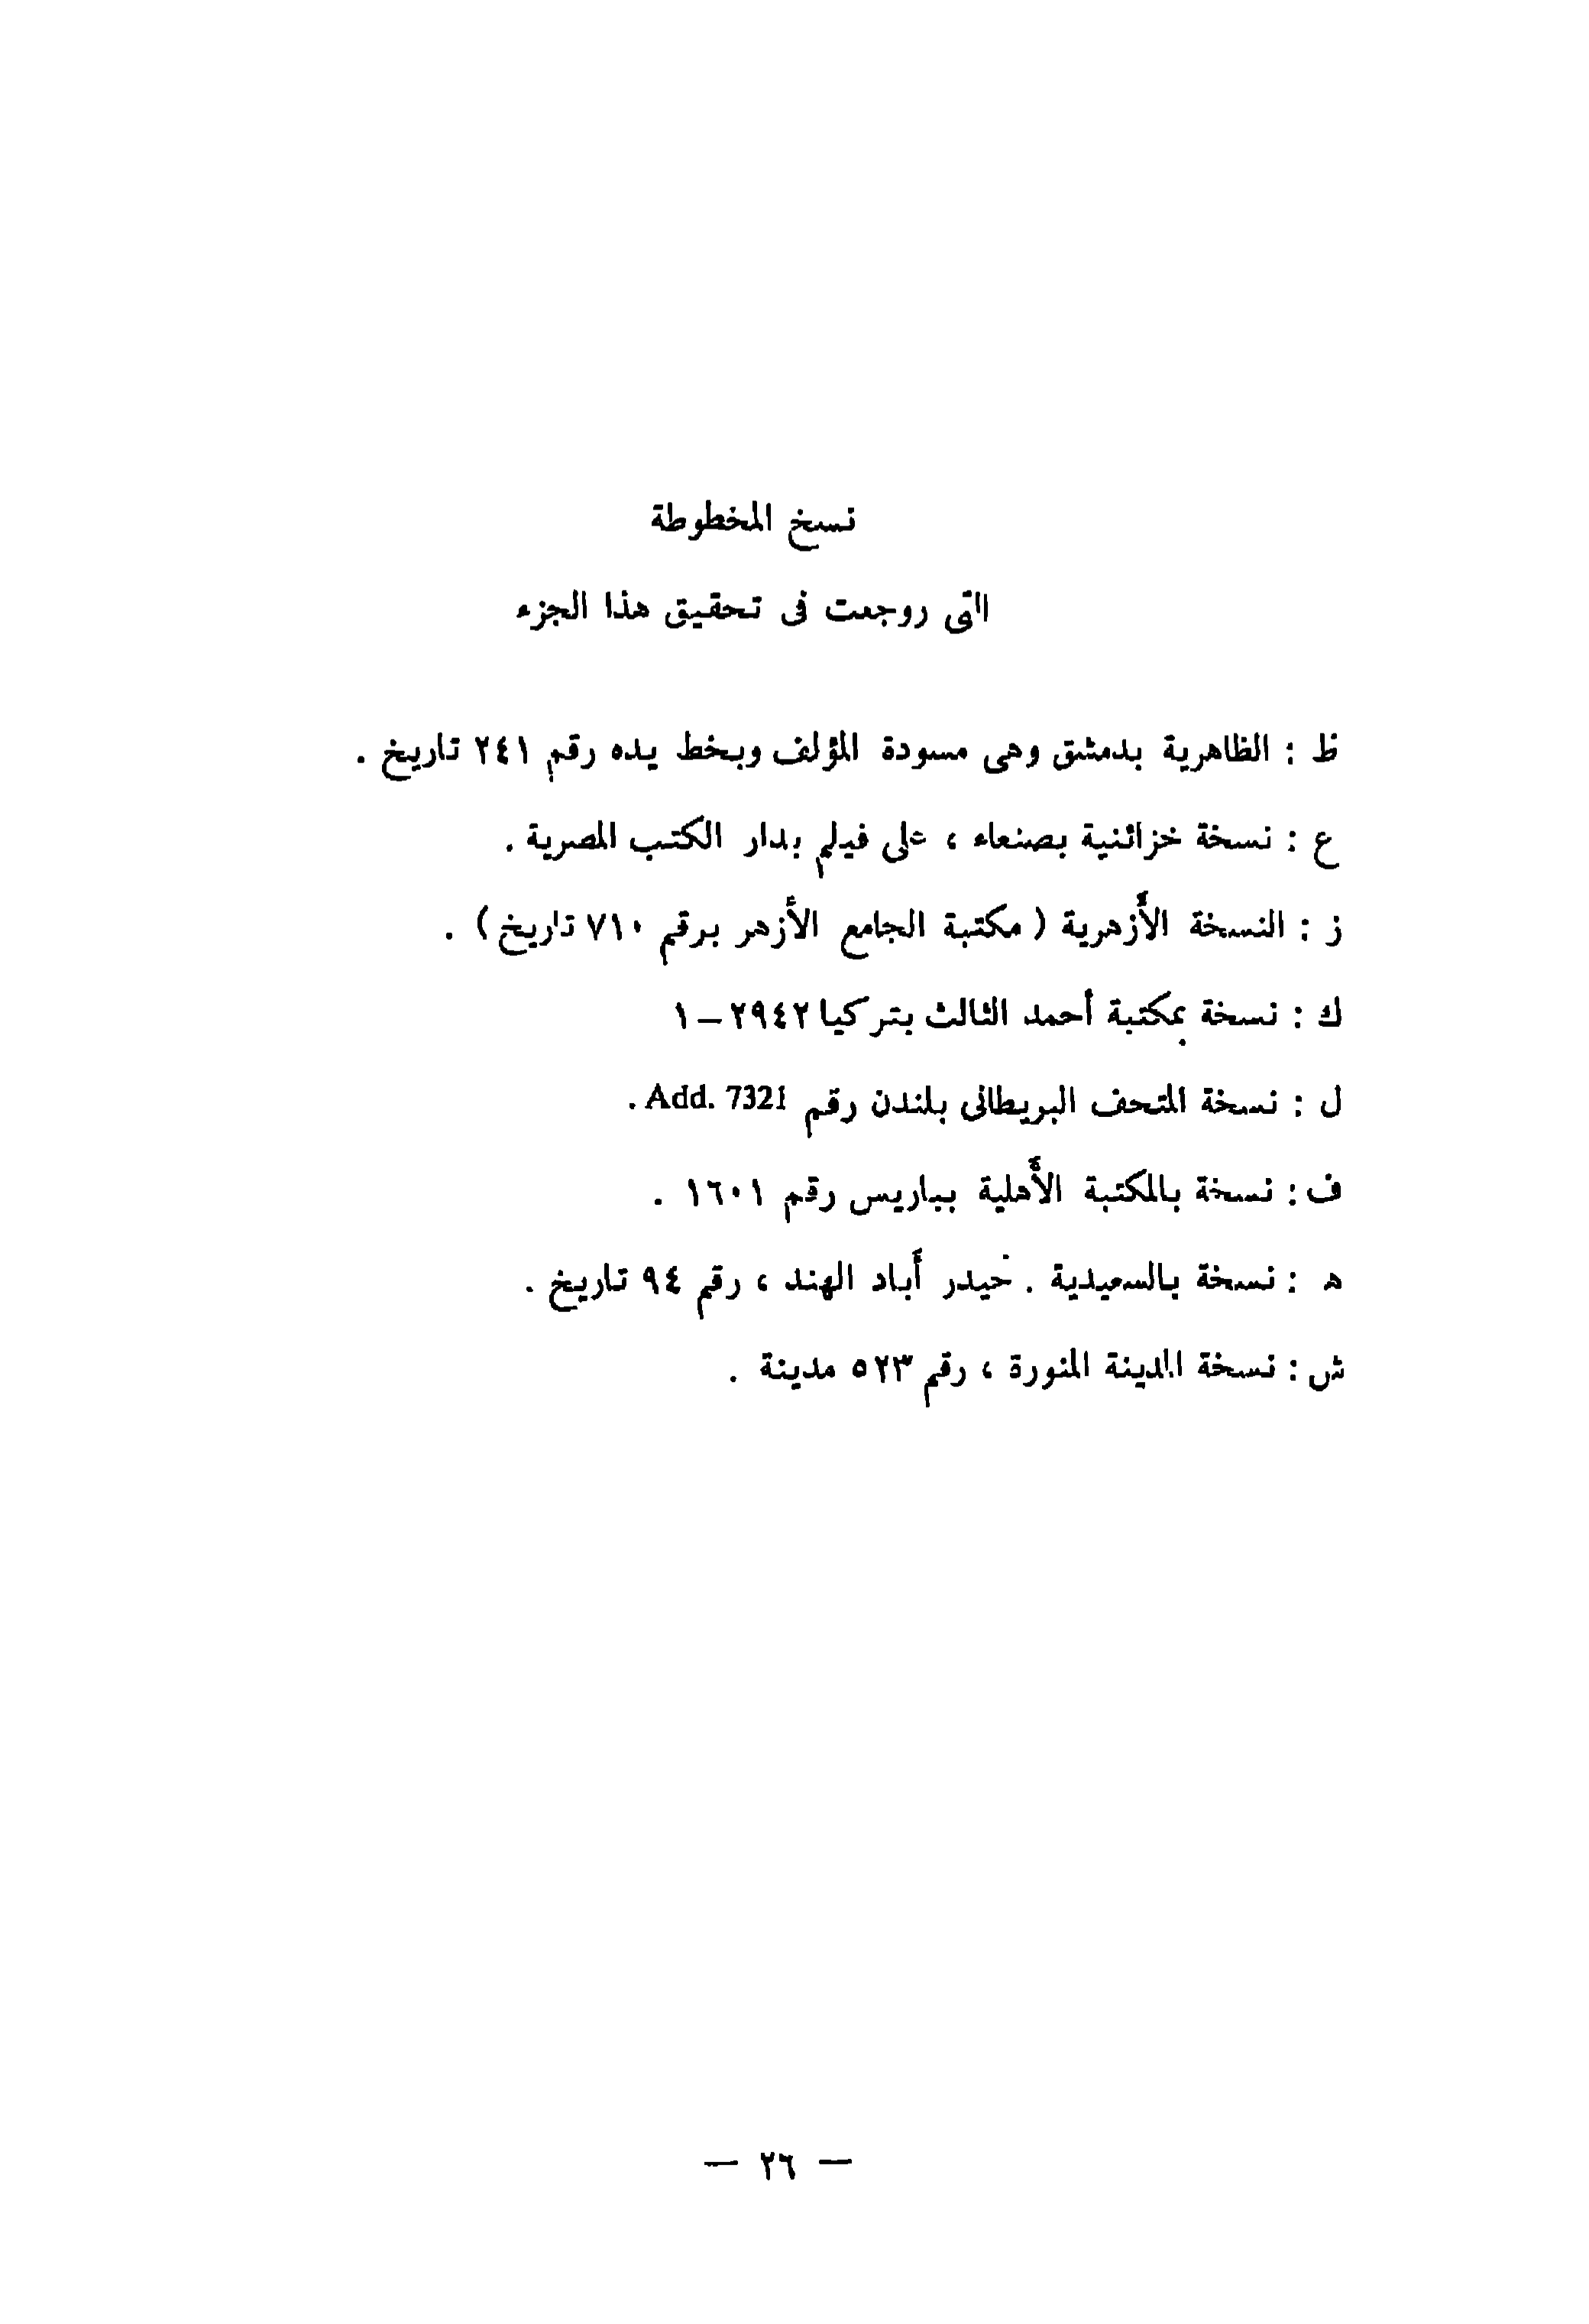 نسخ المخطوطة
التى روجعت فى تحقيق هذا الجزء
ظ : الظاهرية بدمشق وهى مسودة المؤلف وبخط يده رقم ٢٤١ تاريخ .
ع : نسخة خزائنية بصنعاء ، على فيلم بدار الكتب المصرية .
ز : النسخة الأزهرية ( مكتبة الجامع الأزهر برقم ٧١٠ تاريخ ) .
ك : نسخة بمكتبة أحمد الثالث بتركيا ٢٩٤٢ – ١
ل : نسخة المتحف البريطانى بلندن رقم Add. 7321 .
ف : نسخة بالمكتبة الأهلية بباريس رقم ١٦٠١ .
ه : نسخة بالسعيدية . حيدر أباد الهند ، رقم ٩٤ تاريخ .
ش : نسخة المدينة المنورة ، رقم ٥٢٣ مدينة .
— ٢٦ —